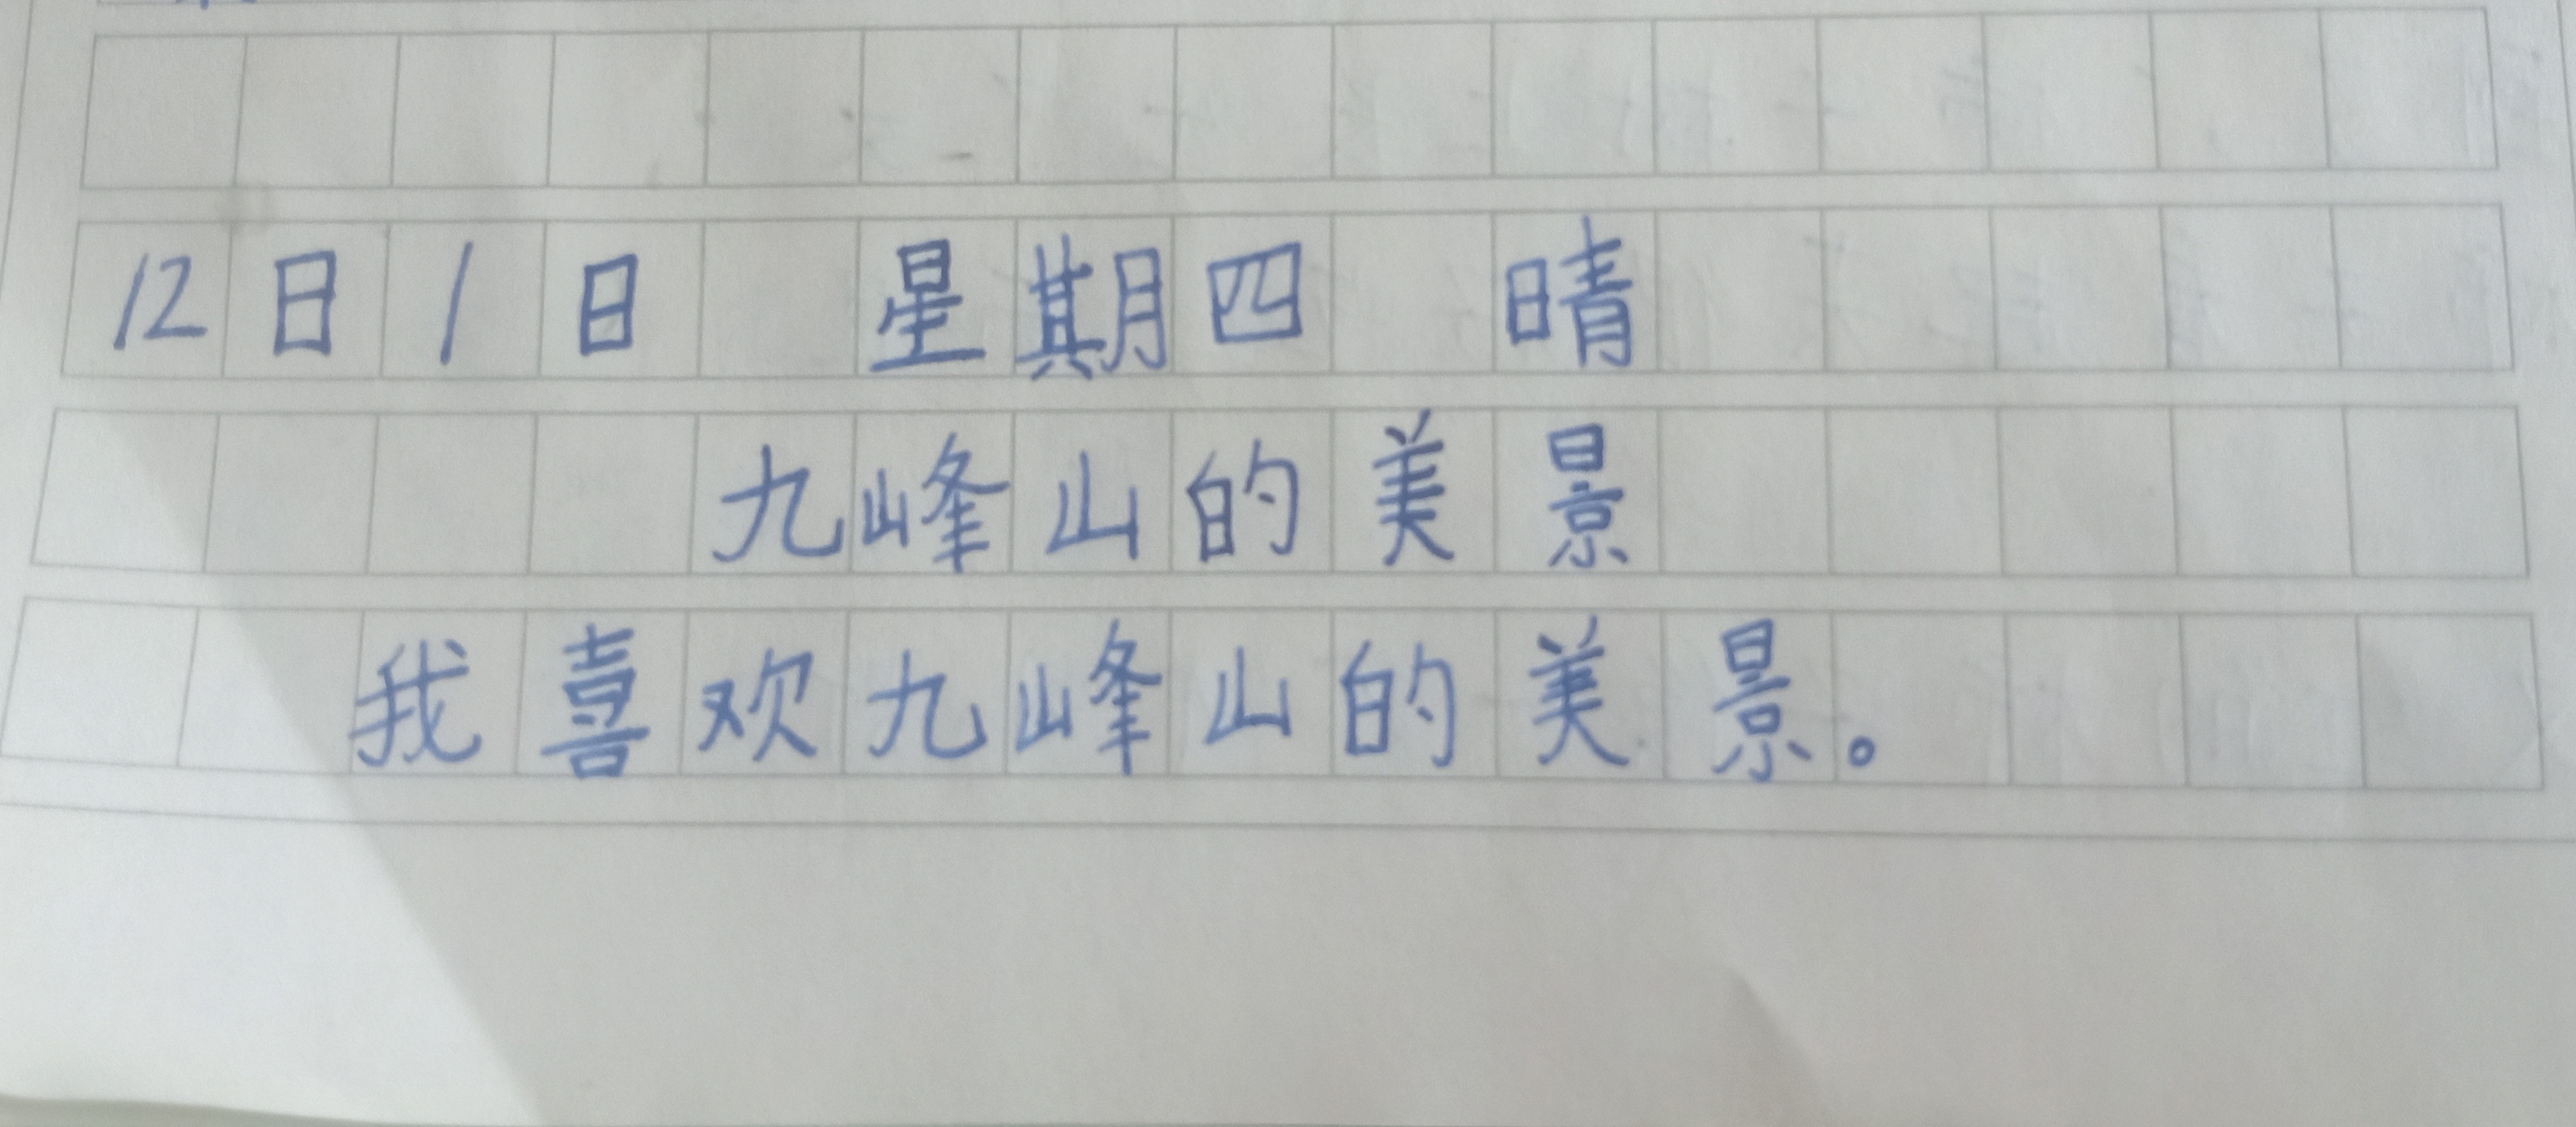 12日1日 星期四 晴
九峰山的美景
我喜欢九峰山的美景。